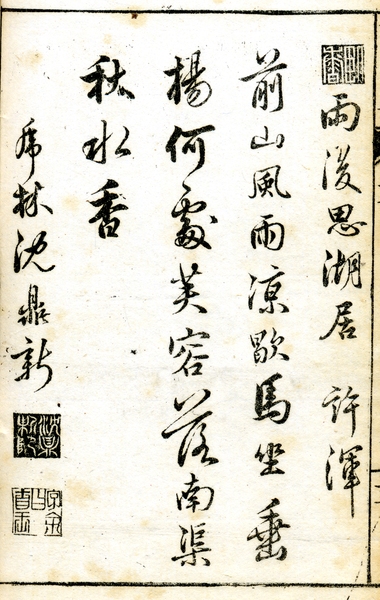 雨後思湖居 許渾
前山風雨涼歇馬坐垂
楊何處芙容落南渠
秋水香
虎林沈鼎新